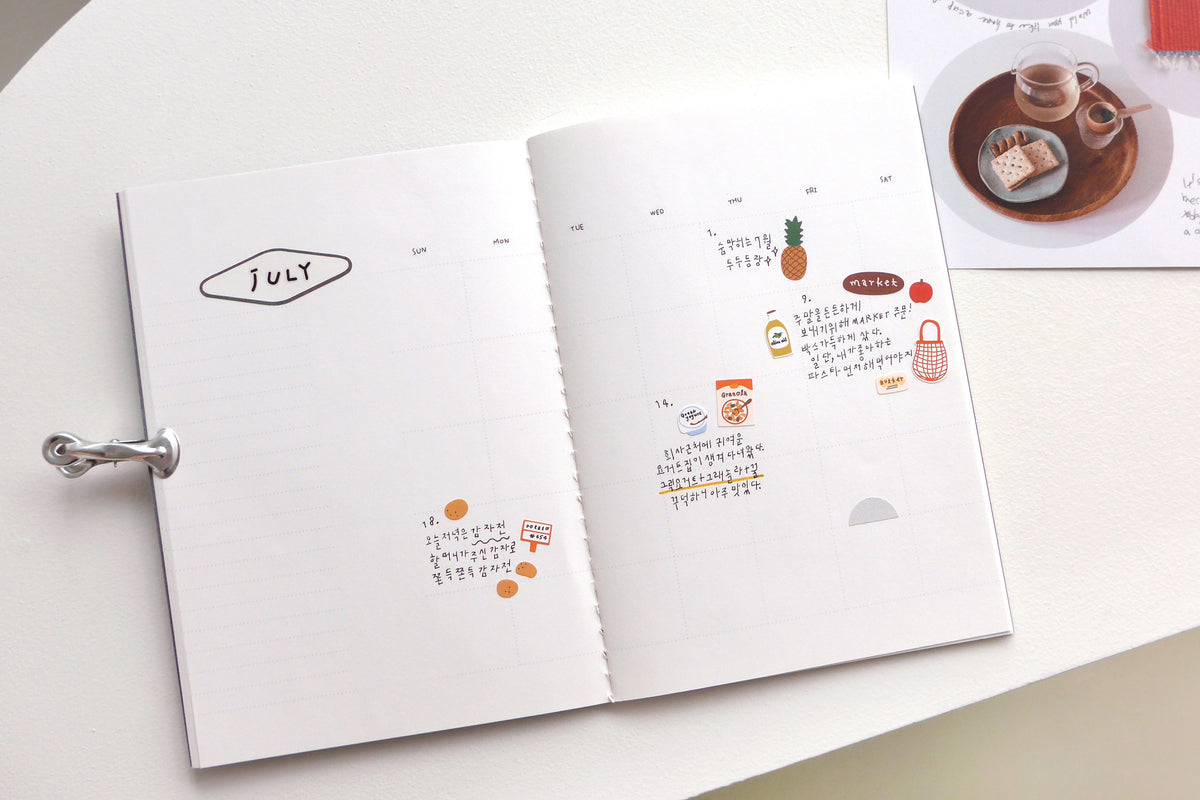 would you like to have a cup
JULY
SUN
MON
TUE
WED
THU
FRI
SAT
1.
숨막히는 7월
두두등장
market
9.
주말을든든하게
보내기위해 MARKET 주문!
박스가득하게 샀다.
일단, 내가좋아하는
파스타 먼저해먹어야지
olive oil
BUTTER
14.
Greek
yogurt
Granola
회사근처에 귀여운
요거트집이 생겨 다녀왔다.
그릭요거트+그래놀라+꿀
꾸덕하니 아주 맛있다.
18.
오늘저녁은 감자전
할머니가 주신 감자로
쫀득쫀득 감자전
POTATO
#654